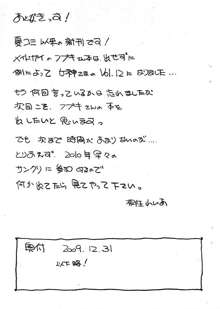 あとがきっす!
夏コミ以来の新刊です!
メイルガイのフブキさん本は出せずに
例によって女神さまのVol.12になりました…
もう何回言っているかは忘れましたが
次回こそ、フブキさんの本を
出したいと思いますっ
でも次まで時間があまりないのが…
とりあえず、2010年冬々の
サンクリに参加するので
何か出てたら見てやって下さい。
奥付 2009.12.31
以下略!